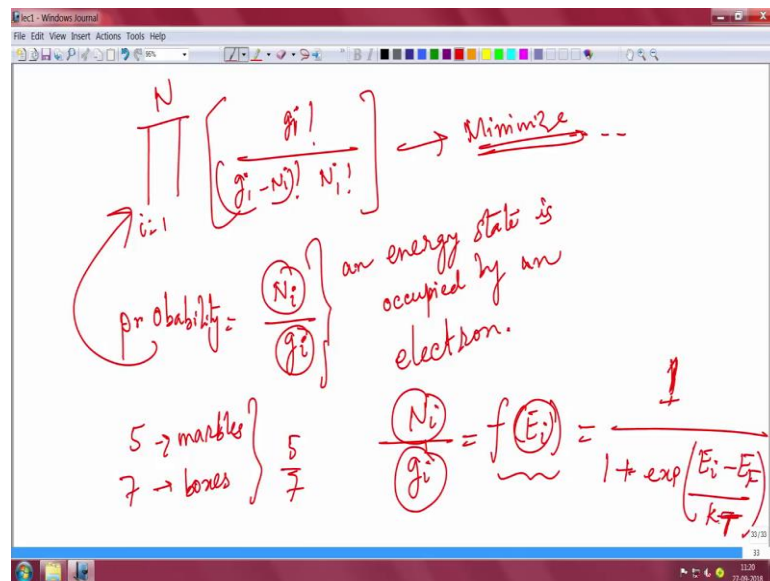 lec1 - Windows Journal
File Edit View Insert Actions Tools Help
96%
B I
N
∏ [ gi! / (gi - Ni)! Ni! ] → Minimize --
i=1
probability = Ni / gi } an energy state is
occupied by an
electron.
5 → marbles } 5
7 → boxes } 7
Ni / gi = f(Ei) = 1 / 1 + exp( Ei - EF / kT )
33/33
33
11:20
27-09-2018